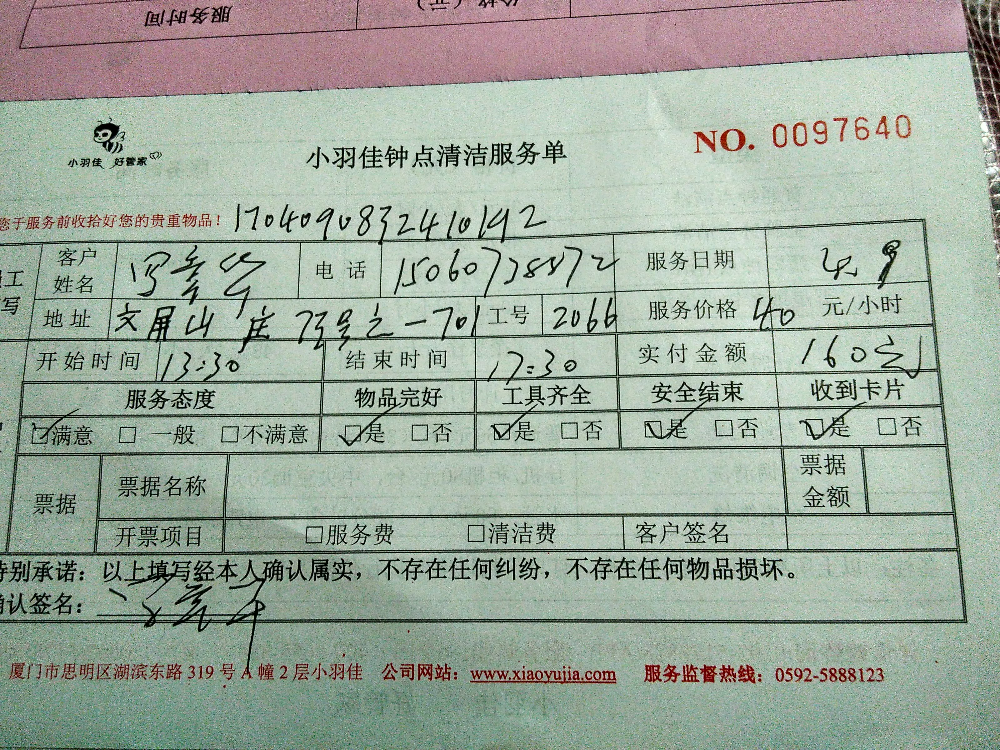 服务时间 价格(元)
小羽佳 好管家
小羽佳钟点清洁服务单 NO. 0097640
您于服务前收拾好您的贵重物品! 170409083241042
客户姓名 电话 15060728872 服务日期 4.9
地址 文屏山庄 号之一701 工号 2066 服务价格 40 元/小时
开始时间 13:30 结束时间 17:30 实付金额 160元
服务态度 物品完好 工具齐全 安全结束 收到卡片
☑满意 □一般 □不满意 ☑是 □否 ☑是 □否 ☑是 □否 ☑是 □否
票据 票据名称 票据金额
开票项目 □服务费 □清洁费 客户签名
特别承诺:以上填写经本人确认属实,不存在任何纠纷,不存在任何物品损坏。
确认签名:
厦门市思明区湖滨东路 319 号 A 幢 2 层小羽佳 公司网站:www.xiaoyujia.com 服务监督热线:0592-5888123